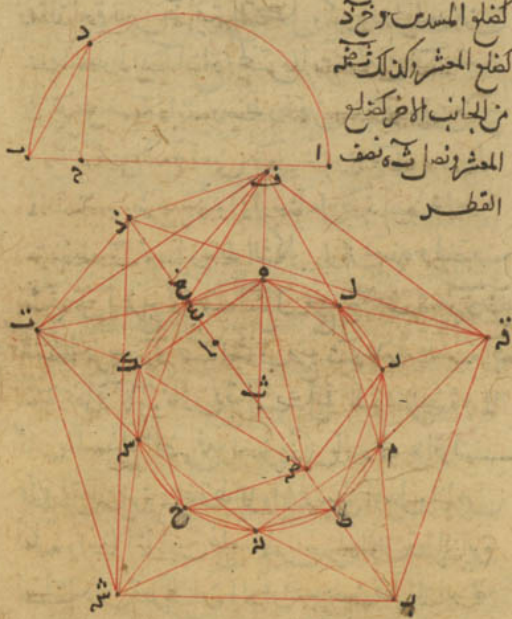 كضلع المسدس و خ ذ
كضلع المعشر وكذلك نفصله
من الجانب الاخر كضلع
المعشر ونصل ث ه نصف
القطر
د
ب
ح
ا
ف
ذ
ه
ل
خ
س
تا
ك
ر
د
ق
ثا
م
ع
ص
ح
ط
ن